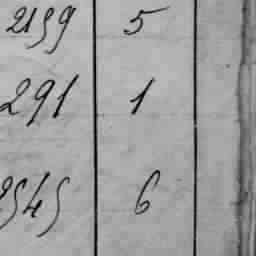 2159 5
291 1
2545 6